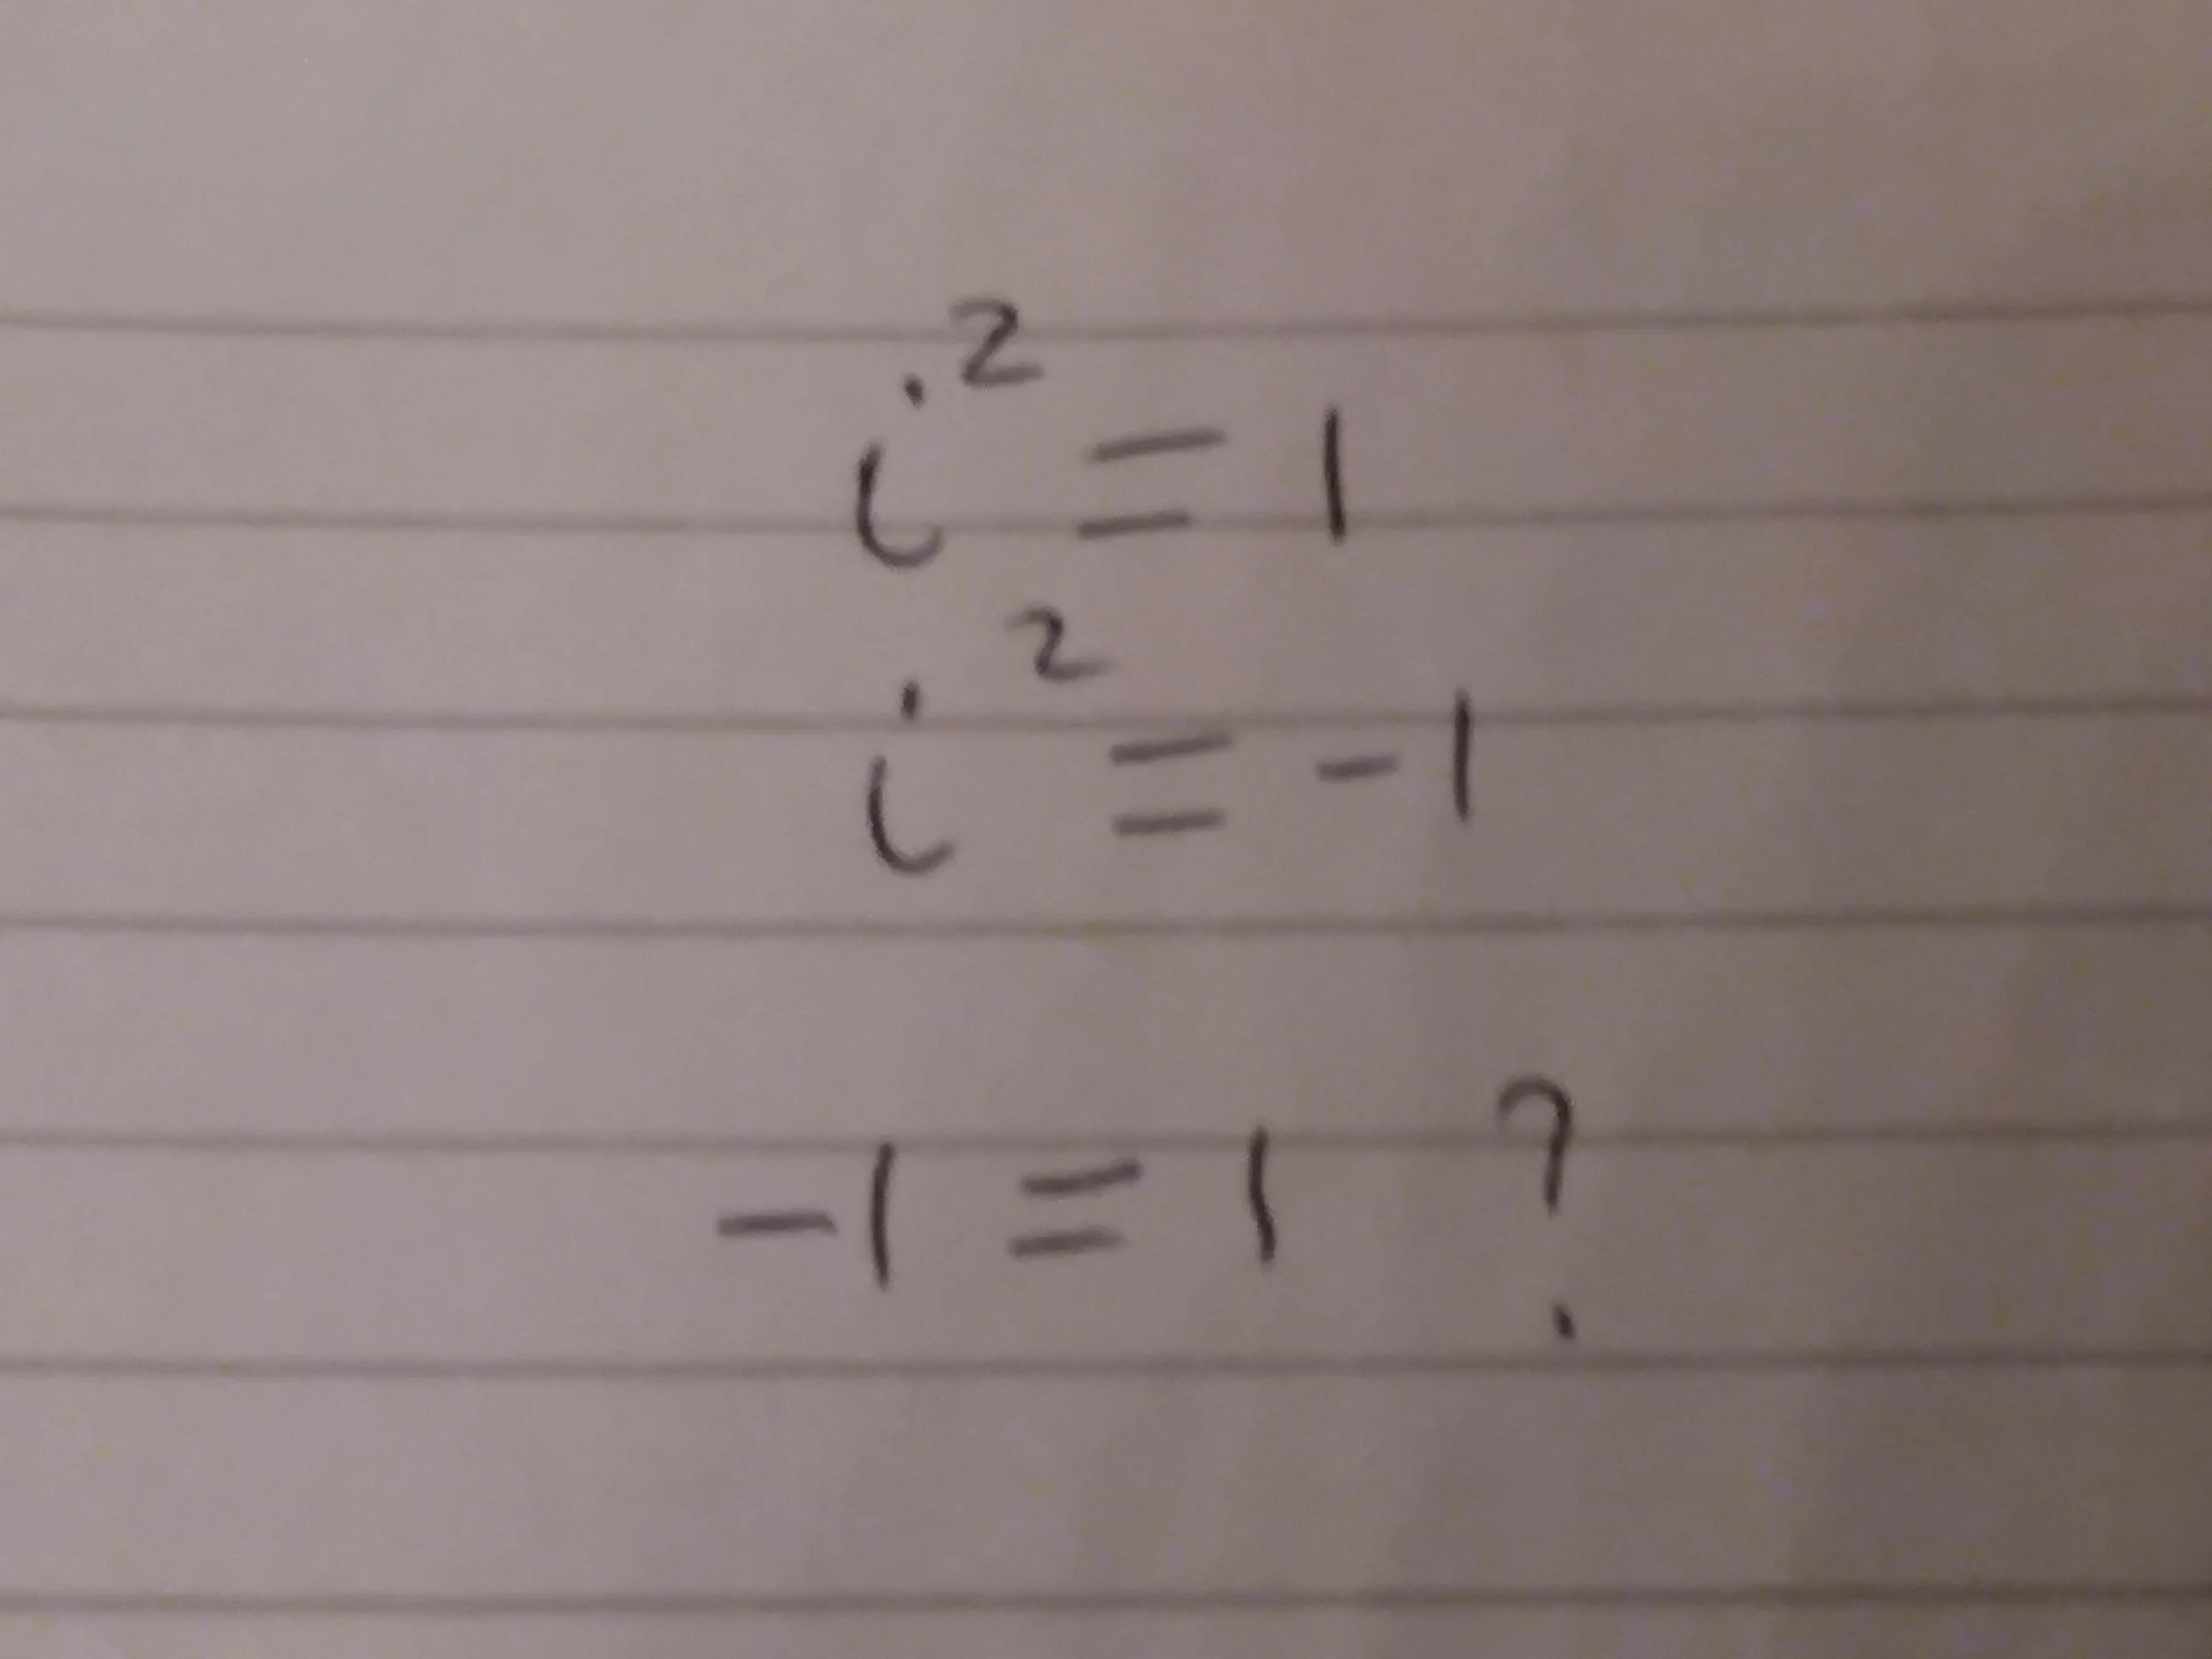 i² = 1
i² = -1
-1 = 1 ?